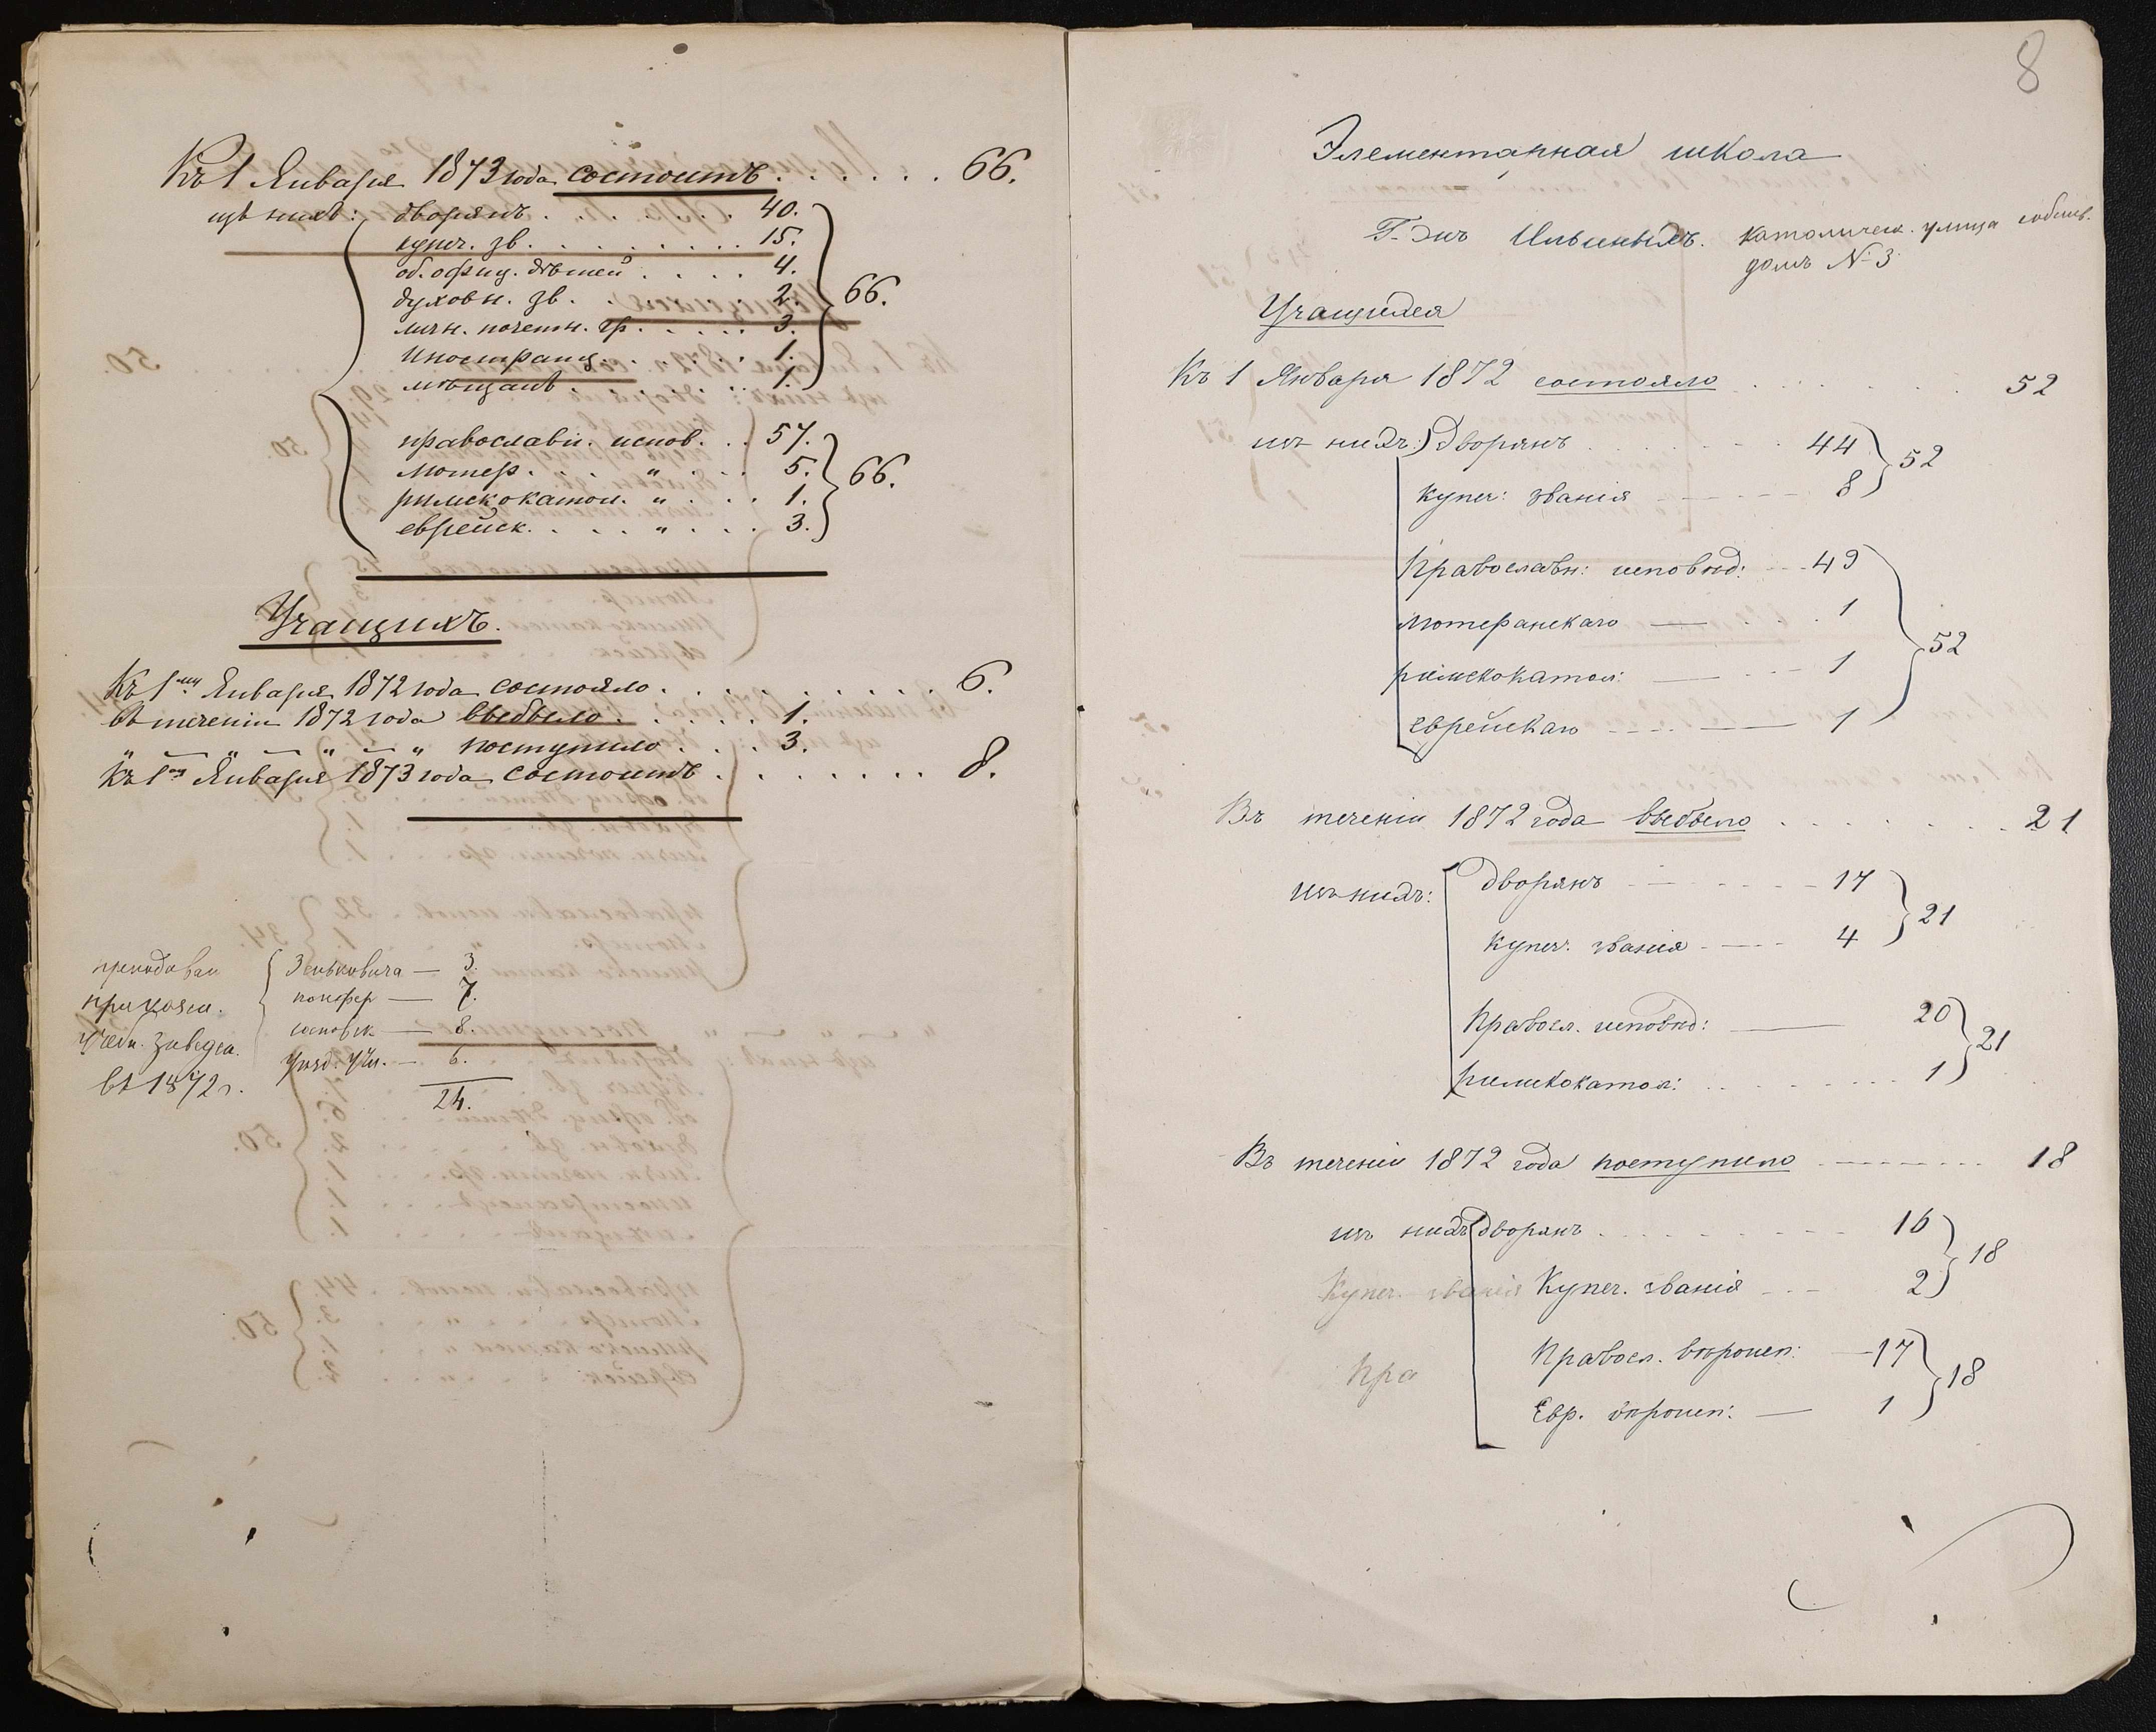 Къ 1 Января 1873 года состоитъ . . . . . . 66.
изъ нихъ: дворянъ . . . . . . . 40.
купеч. зв. . . . . . . . . 15.
об. офиц. дѣтей . . . . 4.
духовн. зв. . . . . 2. 66.
личн. почетн. гр. . . . . 3.
Иностранц. . . . . . 1.
мѣщанъ . . . . . . . 1.
православн. испов. . . 57.
лютер. . . . " . . . 5. 66.
римскокатол. " . . . 1.
еврейск. . . . . " . . . 3.
Учащихъ.
Къ 1му Января 1872 года состояло . . . . . . . . . . 6.
въ теченіи 1872 года выбыло . . . . . 1.
" — " — " — " поступило . . . 3.
Къ 1му Января 1873 года состоитъ . . . . . . . . 8.
преподават
приходск.
учебн. заведен.
въ 1872 г.
Зеньковича — 3.
— 7.
— 8.
Уѣзд. Уч. — 6.
24.
8
Элементарная школа
Г-жъ Ильиныхъ. католическ. улица собств.
домъ № 3
Учащихся
Къ 1 Января 1872 состояло . . . . . . . 52
изъ нихъ: дворянъ . . . . . . . 44
купеч: званія - - - - - 8 52
Православн: исповѣд: - - 49
лютеранскаго — . . . 1
римскокатол: — - - 1 52
еврейскаго - - - — 1
Въ теченіи 1872 года выбыло . . . . . . . . 21
изъ нихъ: дворянъ - - - - - - 17
купеч. званія - - - - 4 21
Правосл. исповѣд: — 20
римскокатол: . . . . . . . . 1 21
Въ теченіи 1872 года поступило - - - - - - - 18
изъ нихъ дворянъ . . . . . . . . 16
Купеч. званія Купеч. званія - - - 2 18
Пра Правосл. вѣроисп: — 17
Евр. вѣроисп: — 1 18